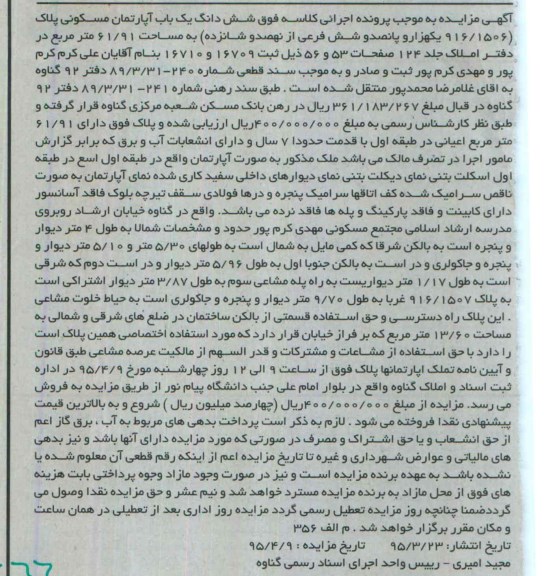 آگهی مزایده به موجب پرونده اجرائی کلاسه فوق شش دانگ یک باب آپارتمان مسکونی پلاک
(۹۱۶/۱۵۰۶ یکهزارو پانصدو شش فرعی از نهصدو شانزده) به مساحت ۶۱/۹۱ متر مربع در
دفتر املاک جلد ۱۲۴ صفحات ۵۳ و ۵۶ ذیل ثبت ۱۶۷۰۹ و ۱۶۷۱۰ بنام آقایان علی کرم کرم
پور و مهدی کرم پور ثبت و صادر و به موجب سند قطعی شماره ۲۴۰-۸۹/۳/۳۱ دفتر ۹۲ گناوه
به اقای غلامرضا محمدپور منتقل شده است . طبق سند رهنی شماره ۲۴۱-۸۹/۳/۳۱ دفتر ۹۲
گناوه در قبال مبلغ ۳۶۱/۱۸۳/۲۶۷ ریال در رهن بانک مسکن شعبه مرکزی گناوه قرار گرفته و
طبق نظر کارشناس رسمی به مبلغ ۴۰۰/۰۰۰/۰۰۰ریال ارزیابی شده و پلاک فوق دارای ۶۱/۹۱
متر مربع اعیانی در طبقه اول با قدمت حدودا ۷ سال و دارای انشعابات آب و برق که برابر گزارش
مامور اجرا در تصرف مالک می باشد ملک مذکور به صورت آپارتمان واقع در طبقه اول اسع در طبقه
اول اسکلت بتنی نمای دیکلت بتنی نمای دیوارهای داخلی سفید کاری شده نمای آپارتمان به صورت
ناقص سرامیک شده کف اتاقها سرامیک پنجره و درها فولادی سقف تیرچه بلوک فاقد آسانسور
دارای کابینت و فاقد پارکینگ و پله ها فاقد نرده می باشد. واقع در گناوه خیابان ارشاد روبروی
مدرسه ارشاد اسلامی مجتمع مسکونی مهدی کرم پور حدود و مشخصات شمالا به طول ۴ متر دیوار
و پنجره است به بالکن شرقا که کمی مایل به شمال است به طولهای ۵/۳۰ متر و ۵/۱۰ متر دیوار و
پنجره و جاکولری و در است به بالکن جنوبا اول به طول ۵/۹۶ متر دیوار و در است دوم که شرقی
است به طول ۱/۱۷ متر دیواریست به راه پله مشاعی سوم به طول ۳/۸۷ متر دیوار اشتراکی است
به پلاک ۹۱۶/۱۵۰۷ غربا به طول ۹/۷۰ متر دیوار و پنجره و جاکولری است به حیاط خلوت مشاعی
. این پلاک راه دسترسی و حق استفاده قسمتی از بالکن ساختمان در ضلع های شرقی و شمالی به
مساحت ۱۳/۶۰ متر مربع که بر فراز خیابان قرار دارد که مورد استفاده اختصاصی همین پلاک است
را دارد با حق استفاده از مشاعات و مشترکات و قدر السهم از مالکیت عرصه مشاعی طبق قانون
و آیین نامه تملک اپارتمانها پلاک فوق از ساعت ۹ الی ۱۲ روز چهارشنبه مورخ ۹۵/۴/۹ در اداره
ثبت اسناد و املاک گناوه واقع در بلوار امام علی جنب دانشگاه پیام نور از طریق مزایده به فروش
می رسد. مزایده از مبلغ ۴۰۰/۰۰۰/۰۰۰ریال (چهارصد میلیون ریال ) شروع و به بالاترین قیمت
پیشنهادی نقدا فروخته می شود . لازم به ذکر است پرداخت بدهی های مربوط به آب ، برق گاز اعم
از حق انشعاب و یا حق اشتراک و مصرف در صورتی که مورد مزایده دارای آنها باشد و نیز بدهی
های مالیاتی و عوارض شهرداری و غیره تا تاریخ مزایده اعم از اینکه رقم قطعی آن معلوم شده یا
نشده باشد به عهده برنده مزایده است و نیز در صورت وجود مازاد وجوه پرداختی بابت هزینه
های فوق از محل مازاد به برنده مزایده مسترد خواهد شد و نیم عشر و حق مزایده نقدا وصول می
گرددضمنا چنانچه روز مزایده تعطیل رسمی گردد مزایده روز اداری بعد از تعطیلی در همان ساعت
و مکان مقرر برگزار خواهد شد . م الف ۳۵۶
تاریخ انتشار: ۹۵/۳/۲۳ تاریخ مزایده : ۹۵/۴/۹
مجید امیری - رییس واحد اجرای اسناد رسمی گناوه